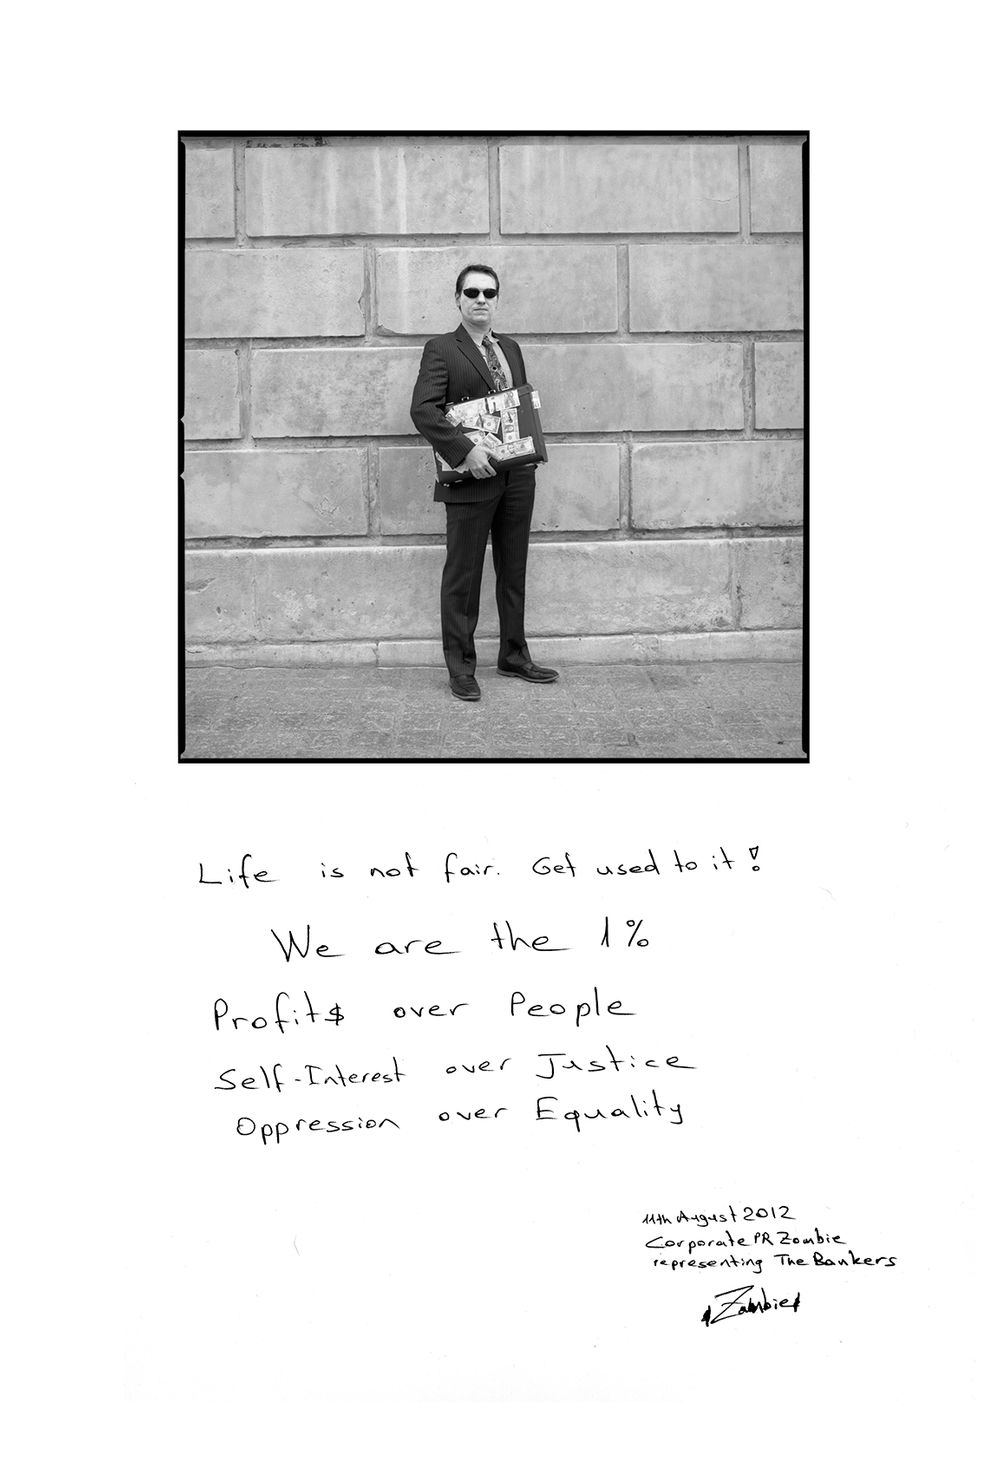 Life is not fair. Get used to it!
We are the 1%
Profit$ over People
Self-Interest over Justice
Oppression over Equality
11th August 2012
Corporate PR Zombie
representing The Bankers
Zombie